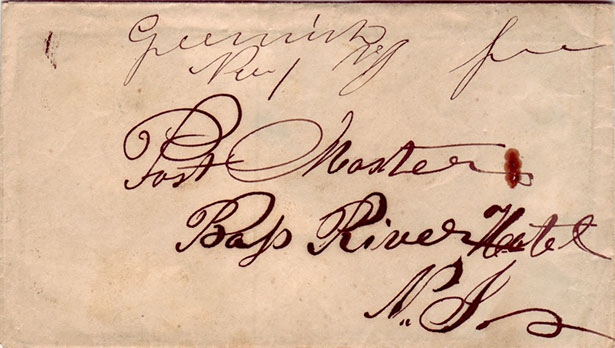 Greenwich
free
Post Master
Bass River Hotel
N. J.